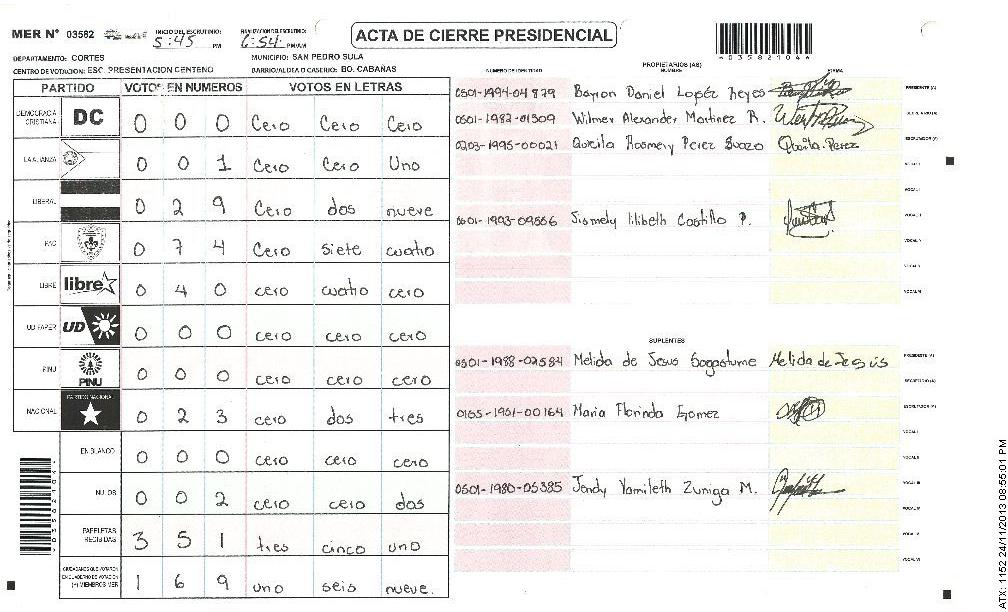 MER N° 03582 INICIO DEL ESCRUTINIO: 5:45 PM FINALIZACION DEL ESCRUTINIO: 6:54 PM/AM
ACTA DE CIERRE PRESIDENCIAL
*035821046*
DEPARTAMENTO: CORTES MUNICIPIO: SAN PEDRO SULA
CENTRO DE VOTACION: ESC. PRESENTACION CENTENO BARRIO/ALDEA O CASERIO: BO. CABAÑAS
PARTIDO VOTOS EN NUMEROS VOTOS EN LETRAS
DEMOCRACIA CRISTIANA DC 0 0 0 Cero Cero Cero
LA ALIANZA 0 0 1 Cero Cero Uno
LIBERAL 0 2 9 Cero dos nueve
PAC 0 7 4 Cero siete cuatro
LIBRE libre 0 4 0 cero cuatro cero
UD FAPER UD 0 0 0 cero cero cero
PINU PINU 0 0 0 cero cero cero
NACIONAL PARTIDO NACIONAL 0 2 3 cero dos tres
EN BLANCO 0 0 0 cero cero cero
NULOS 0 0 2 cero cero dos
PAPELETAS RECIBIDAS 3 5 1 tres cinco uno
CIUDADANOS QUE VOTARON EN CUADERNO DE VOTACION (+) MIEMBROS MER 1 6 9 uno seis nueve.
PROPIETARIOS (AS)
NUMERO DE IDENTIDAD NOMBRE FIRMA
0501-1994-04879 Bayron Daniel Lopéz Reyes PRESIDENTE (A)
0501-1982-01309 Wilmer Alexander Martinez R. SECRETARIO (A)
0203-1995-00021 Rosmery Perez Suazo Perez ESCRUTADOR (A)
VOCAL I
VOCAL II
0501-1993-09566 Lilibeth Castillo P. VOCAL III
VOCAL IV
VOCAL V
VOCAL VI
SUPLENTES
0501-1988-02584 Melida de Jesus Sagastume Melida de Jesús PRESIDENTE (A)
SECRETARIO (A)
Maria Florinda Gomez ESCRUTADOR (A)
VOCAL I
VOCAL II
0501-1980-05385 Jendy Yamileth Zuniga M. VOCAL III
VOCAL IV
VOCAL V
VOCAL VI
ATX: 1152 24/11/2013 08:55:01 PM
*035821046*